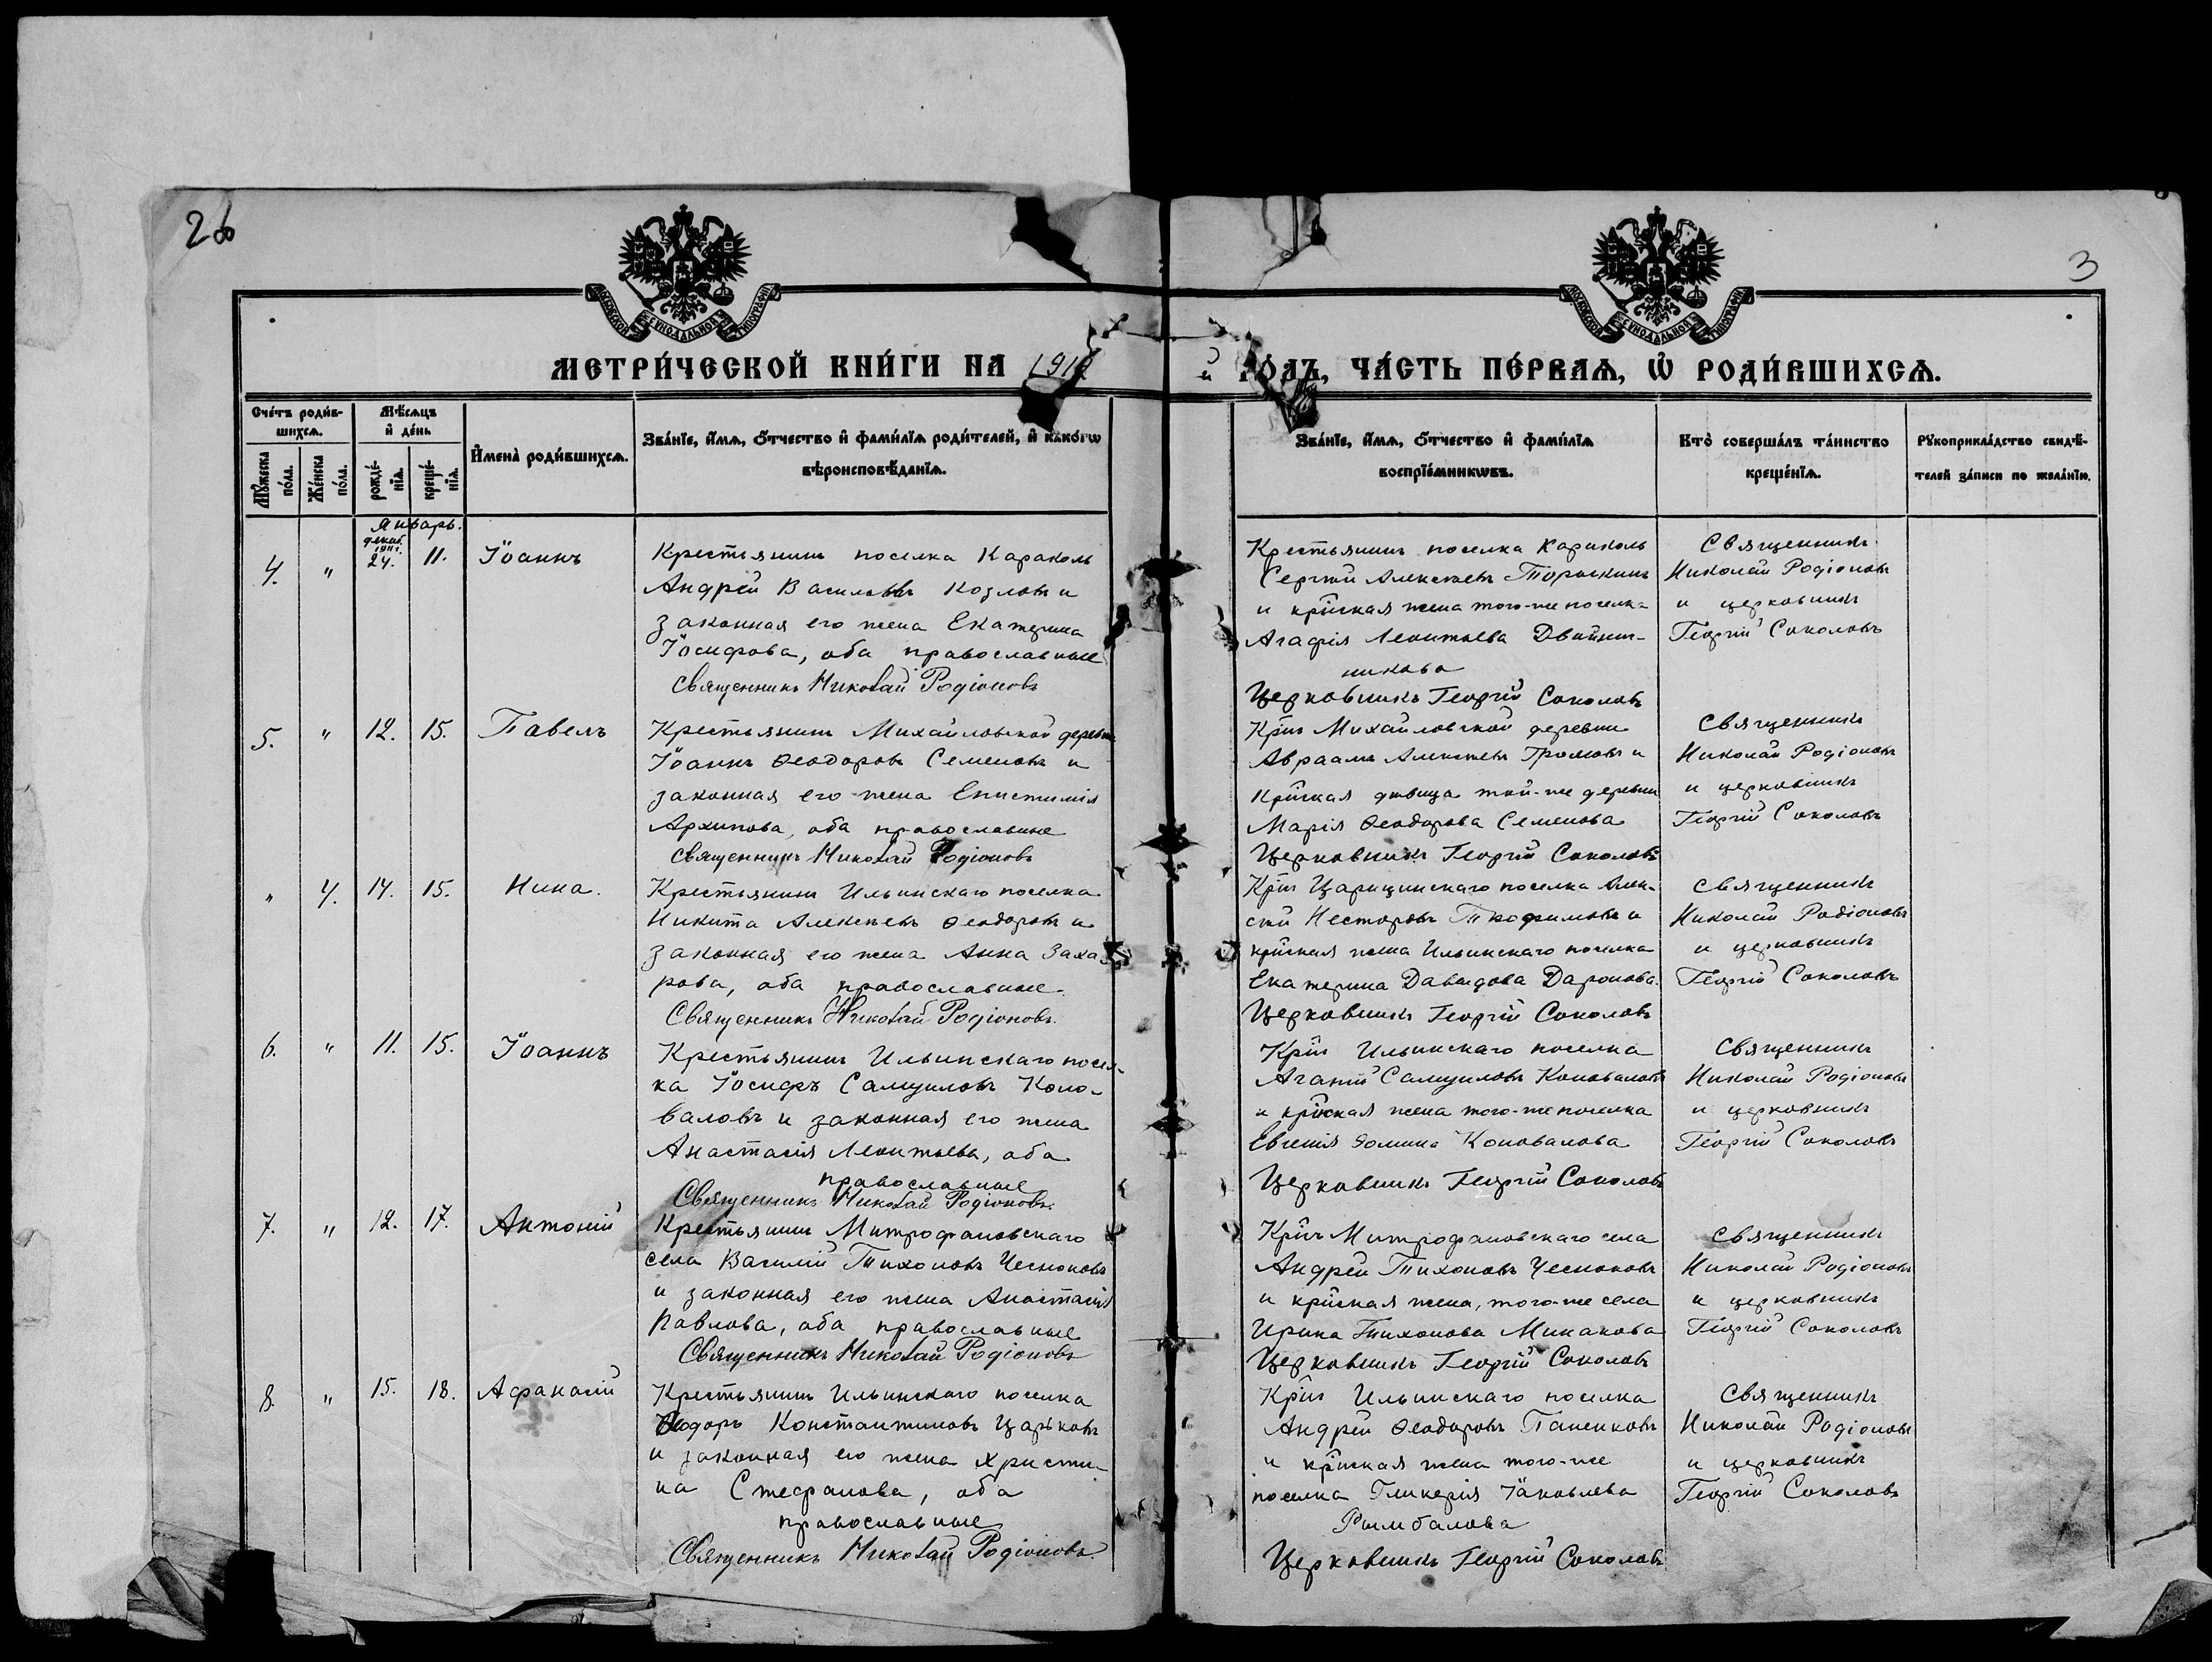 26
3
МОСКОВСКОЙ СѴНОДАЛЬНОЙ ТИПОГРАФІИ
МОСКОВСКОЙ СѴНОДАЛЬНОЙ ТИПОГРАФІИ
МЕТРИ́ЧЕСКОЙ КНИ́ГИ НА 191
ГО́ДЪ, ЧА́СТЬ ПЕ́РВАѦ, Ѡ҆ РОДИ́ВШИХСѦ.
Сче́тъ роди́в-
шихсѧ.
Мѣ́сѧцъ
и҆ де́нь
Мꙋ́жеска
по́ла.
Же́нска
по́ла.
рожде́-
нїѧ.
креще́-
нїѧ.
И҆мена̀ роди́вшихсѧ.
Зва́нїе, и҆́мѧ, ѻ҆́тчество и҆ фами́лїѧ роди́телей, и҆ како́гѡ
вѣроисповѣ́данїѧ.
Зва́нїе, и҆́мѧ, ѻ҆́тчество и҆ фами́лїѧ
воспрїе́мникѡвъ.
Кто̀ соверша́лъ та́инство
креще́нїѧ.
Рꙋкоприкла́дство свидѣ́-
телей за́писи по жела́нїю.
Январь.
декаб.
1911 г.
4. " 24. 11. Іоаннъ
Крестьянинъ поселка Караколь
Андрей Васильевъ Козловъ и
законная его жена Екатерина
Іосифова, оба православные
Священникъ Николай Родіоновъ
Крестьянинъ поселка Караколь
Сергѣй Алексѣевъ Торыкинъ
и кр̃нская жена того-же поселка
Агафія Леонтьева Двойнит-
никова
Церковникъ Георгій Соколовъ
Священникъ
Николай Родіоновъ
и церковникъ
Георгій Соколовъ
5. " 12. 15. Павелъ
Крестьянинъ Михайловской деревни
Іоаннъ Ѳеодоровъ Семеновъ и
законная его жена Епистимія
Архипова, оба православные
Священникъ Николай Родіоновъ
Кр̃нъ Михайловской деревни
Авраамъ Алексѣевъ Громовъ и
Кр̃нская дѣвица той-же деревни
Марія Ѳеодорова Семенова
Церковникъ Георгій Соколовъ
Священникъ
Николай Родіоновъ
и церковникъ
Георгій Соколовъ
" 4. 14. 15. Нина.
Крестьянинъ Ильинскаго поселка
Никита Алексѣевъ Ѳеодоровъ и
законная его жена Анна Заха-
рова, оба православные.
Священникъ Николай Родіоновъ.
Кр̃нъ Царицинскаго поселка Алек-
сѣй Несторовъ Трофимовъ и
кр̃нская жена Ильинскаго поселка
Екатерина Давыдова Даронова.
Церковникъ Георгій Соколовъ
Священникъ
Николай Родіоновъ
и церковникъ
Георгій Соколовъ
6. " 11. 15. Іоаннъ
Крестьянинъ Ильинскаго посел-
ка Іосифъ Самуиловъ Коно-
валовъ и законная его жена
Анастасія Леонтьева, оба
православные
Священникъ Николай Родіоновъ.
Кр̃нъ Ильинскаго поселка
Агапій Самуиловъ Коноваловъ
и кр̃нская жена того-же поселка
Евгенія Ѳомина Коновалова
Церковникъ Георгій Соколовъ
Священникъ
Николай Родіоновъ
и церковникъ
Георгій Соколовъ
7. " 12. 17. Антоній
Крестьянинъ Митрофановскаго
села Василій Тихоновъ Чесноковъ
и законная его жена Анастасія
Павлова, оба православные
Священникъ Николай Родіоновъ
Кр̃нъ Митрофановскаго села
Андрей Тихоновъ Чесноковъ
и кр̃нская жена, того-же села
Ирина Тихонова Минакова
Церковникъ Георгій Соколовъ
Священникъ
Николай Родіоновъ
и церковникъ
Георгій Соколовъ
8. " 15. 18. Афанасій
Крестьянинъ Ильинскаго поселка
Ѳеодоръ Константиновъ Царьковъ
и законная его жена Христи-
на Стефанова, оба
православные
Священникъ Николай Родіоновъ.
Кр̃нъ Ильинскаго поселка
Андрей Ѳеодоровъ Паненковъ
и кр̃нская жена того-же
поселка Гликерія Іаковлева
Рымбалова
Церковникъ Георгій Соколовъ
Священникъ
Николай Родіоновъ
и церковникъ
Георгій Соколовъ